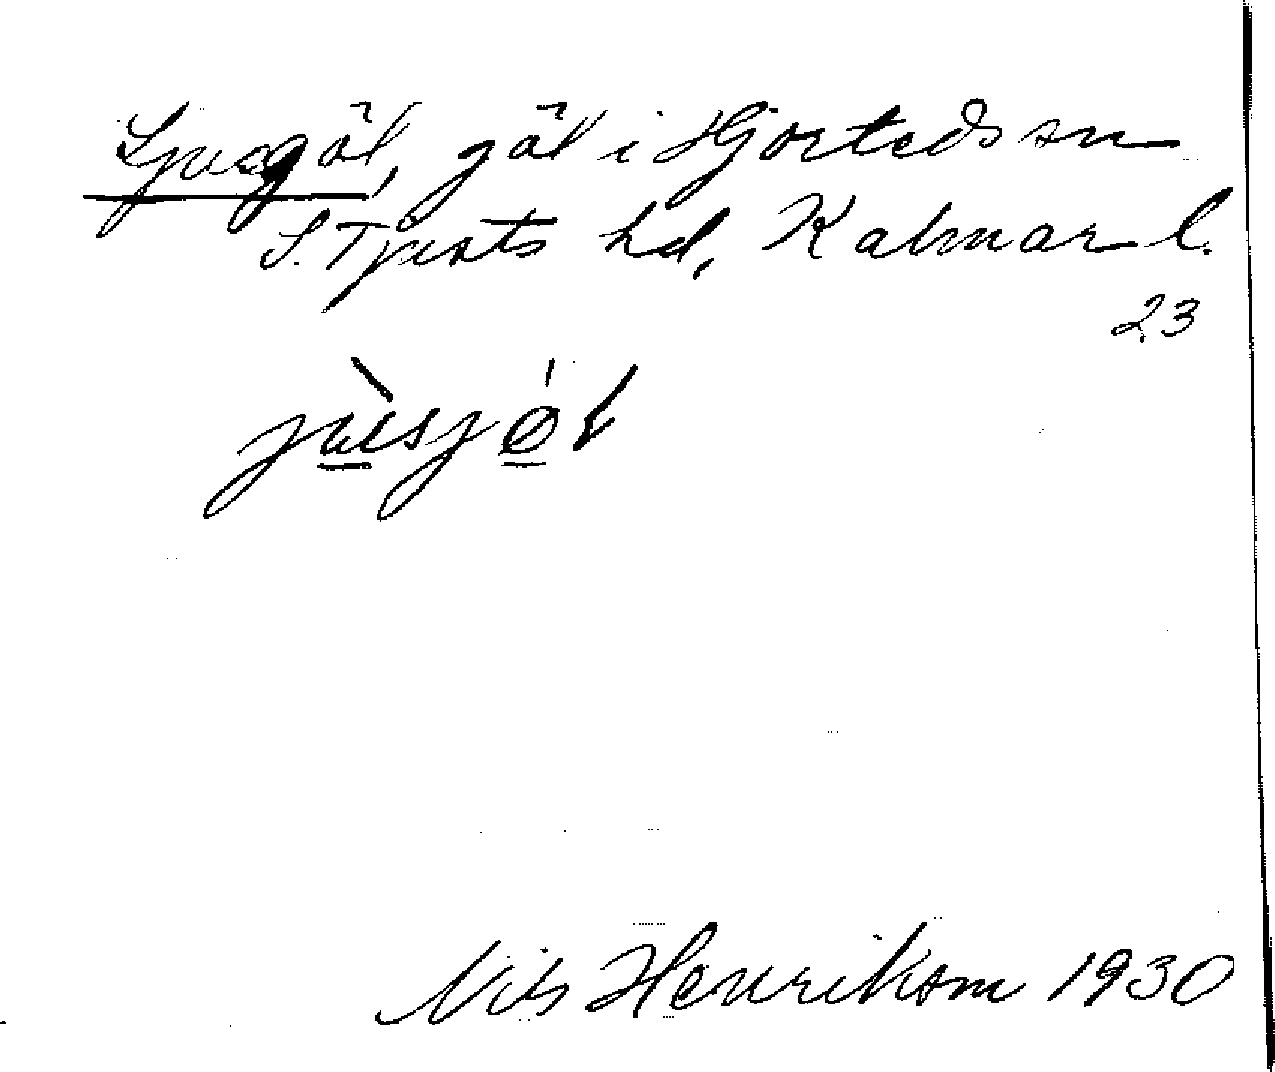 Ljusgöl, göl i Hjorteds sn
S. Tjusts hd, Kalmar l.
23
Nils Henrikson 1930